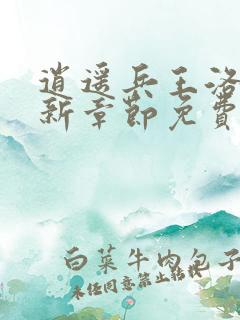 逍遥兵王洛
新章节免费
白菜牛肉包子
未经同意禁止转载